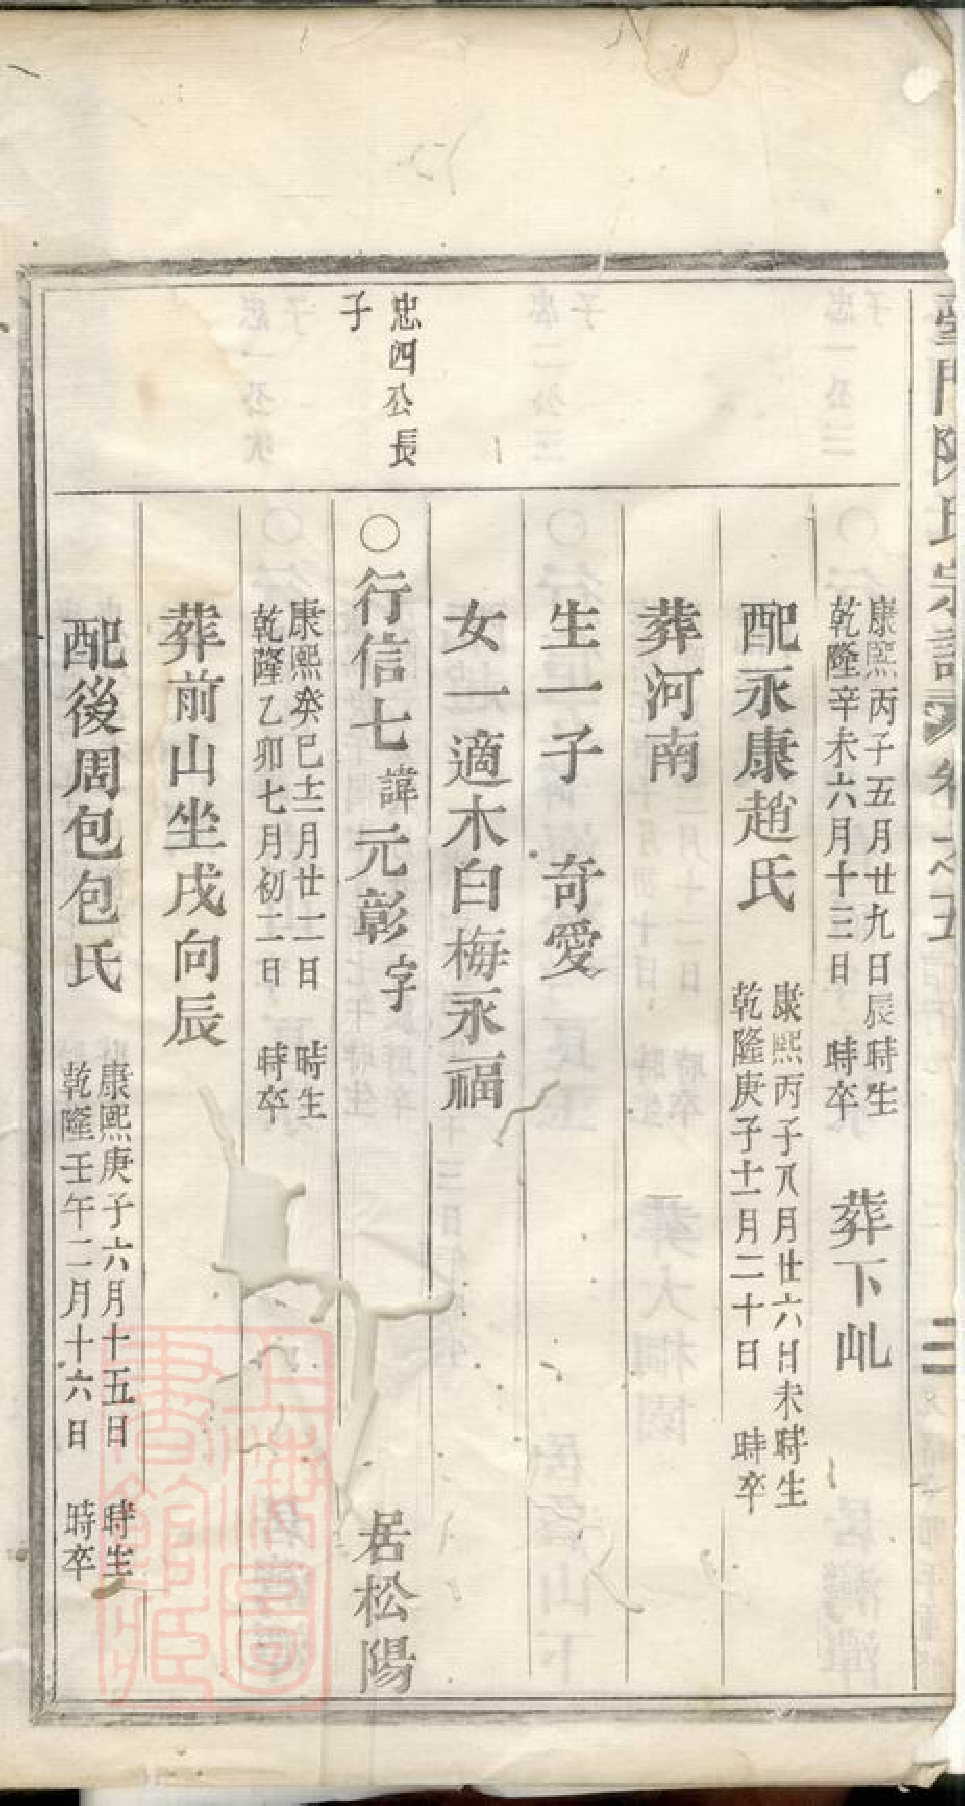 陳氏宗譜 卷之五 二
康熙丙子五月廿九日辰時生
乾隆辛未六月十三日 時卒
葬下乢
配永康趙氏
康熙丙子八月廿六日未時生
乾隆庚子十一月二十日 時卒
葬河南
生一子 奇愛
女一適木白梅永福
忠四公長
子
○行信七諱元彰字 居松陽
康熙癸巳十二月廿二日 時生
乾隆乙卯七月初二日 時卒
葬前山坐戌向辰
配後周包包氏
康熙庚子六月十五日 時生
乾隆壬午二月十六日 時卒
上海圖書館藏